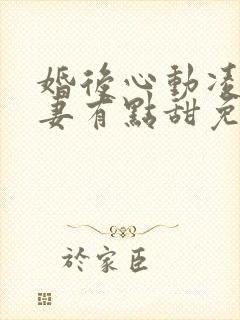 婚後心動凌
妻有點甜免
於家臣